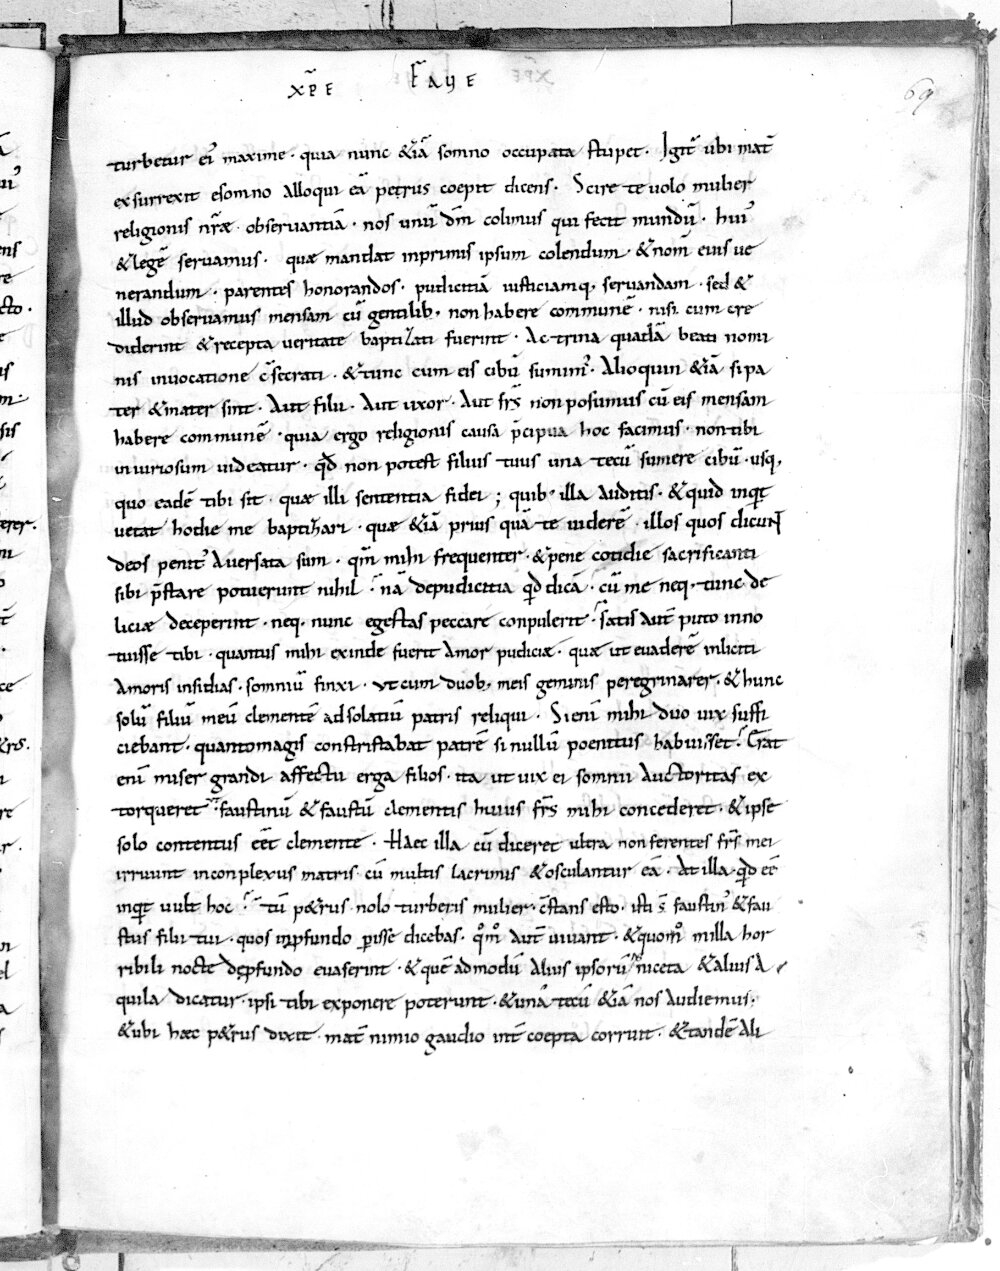 xp̄e f̄aye
69
turbetur ei᾽ maxime · quia nunc &iā somno occupata stupet · Igit᷑ ubi mat᷑
exsurrexit esomno alloqui eā petrus coepit dicens · Scire te uolo mulier
religionis nr̄ae obseruantiā · nos unū dm̄ colimus qui fecit mundū · hui᾽
&legē seruamus · quae mandat inprimis ipsum colendum · &nom̄ eius ue
nerandum · parentes honorandos · pudicitiā iusticiamq, seruandam · sed &
illud obseruamus mensam cū gentilib, non habere communē · nisi cum cre
diderint &recepta ueritate baptizati fuerint · Ac trina quadā beati nomi
nis inuocatione c̄secrati · &tunc cum eis cibū sumim᾽ · Alioquin &iā si pa
ter &mater sint · Aut filii · Aut uxor · Aut fr̄s non possumus cū eis mensam
habere communē · quia ergo religionis causa p̄cipua hoc facimus · non tibi
iniuriosum uideatur · qđ non potest filius tuus una tecū sumere cibū · usq,
quo eadē tibi sit · quae illi sententia fidei ; quib᾽ illa auditis · &quid inquit
uetat hodie me baptizari · quae &iā prius quā te uiderē · illos quos dicunt
deos penit᾽ Auersata sum · qm̄ mihi frequenter · &pene cotidie sacrificanti
sibi p̄stare potuerunt nihil · nā depudicitia qđ dicā · cū me neq, tunc de
liciae deceperint · neq, nunc egestas peccare conpulerit · satis aut̄ puto inno
tuisse tibi · quantus mihi exinde fuerit Amor pudiciae · quae ut euaderē inliciti
Amoris insidias · somniū finxi · ut cum duob, meis geminis peregrinarer · &hunc
solū filiū meū clementē ad solatiū patris reliqui · Si eni᷑ mihi duo uix suffi
ciebant · quantomagis constristabat patrē si nullū poenitus habuisset · Erat
eni᷑ miser grandi affectu erga filios · ita ut uix ei somnii Auctoritas ex
torqueret · faustinū &faustū clementis huius fr̄s mihi concederet · &ipse
solo contentus eēt clemente · Haec illa cū diceret ultra non ferentes fr̄s mei
irruunt inconplexus matris cū multis lacrimis &osculantur eā · At illa qđ eē
inquit uult hoc · tū p&rus nolo turberis mulier · c̄stans esto · isti s̄ faustin᾽ &fau
stus filii tui · quos inpfundo perisse dicebas · quom᷒ aut̄ uiuant · &quom᷒ in illa hor
ribili nocte depfundo euaserint · &quē admodū Alius ipsorū niceta &alius A
quila dicatur · ipsi tibi exponere poterunt · &unā tecū &iā nos Audiemus ·
&ubi haec p&rus dixit · mat᷑ nimio gaudio int᷑ coepta corruit · &tandē Ali